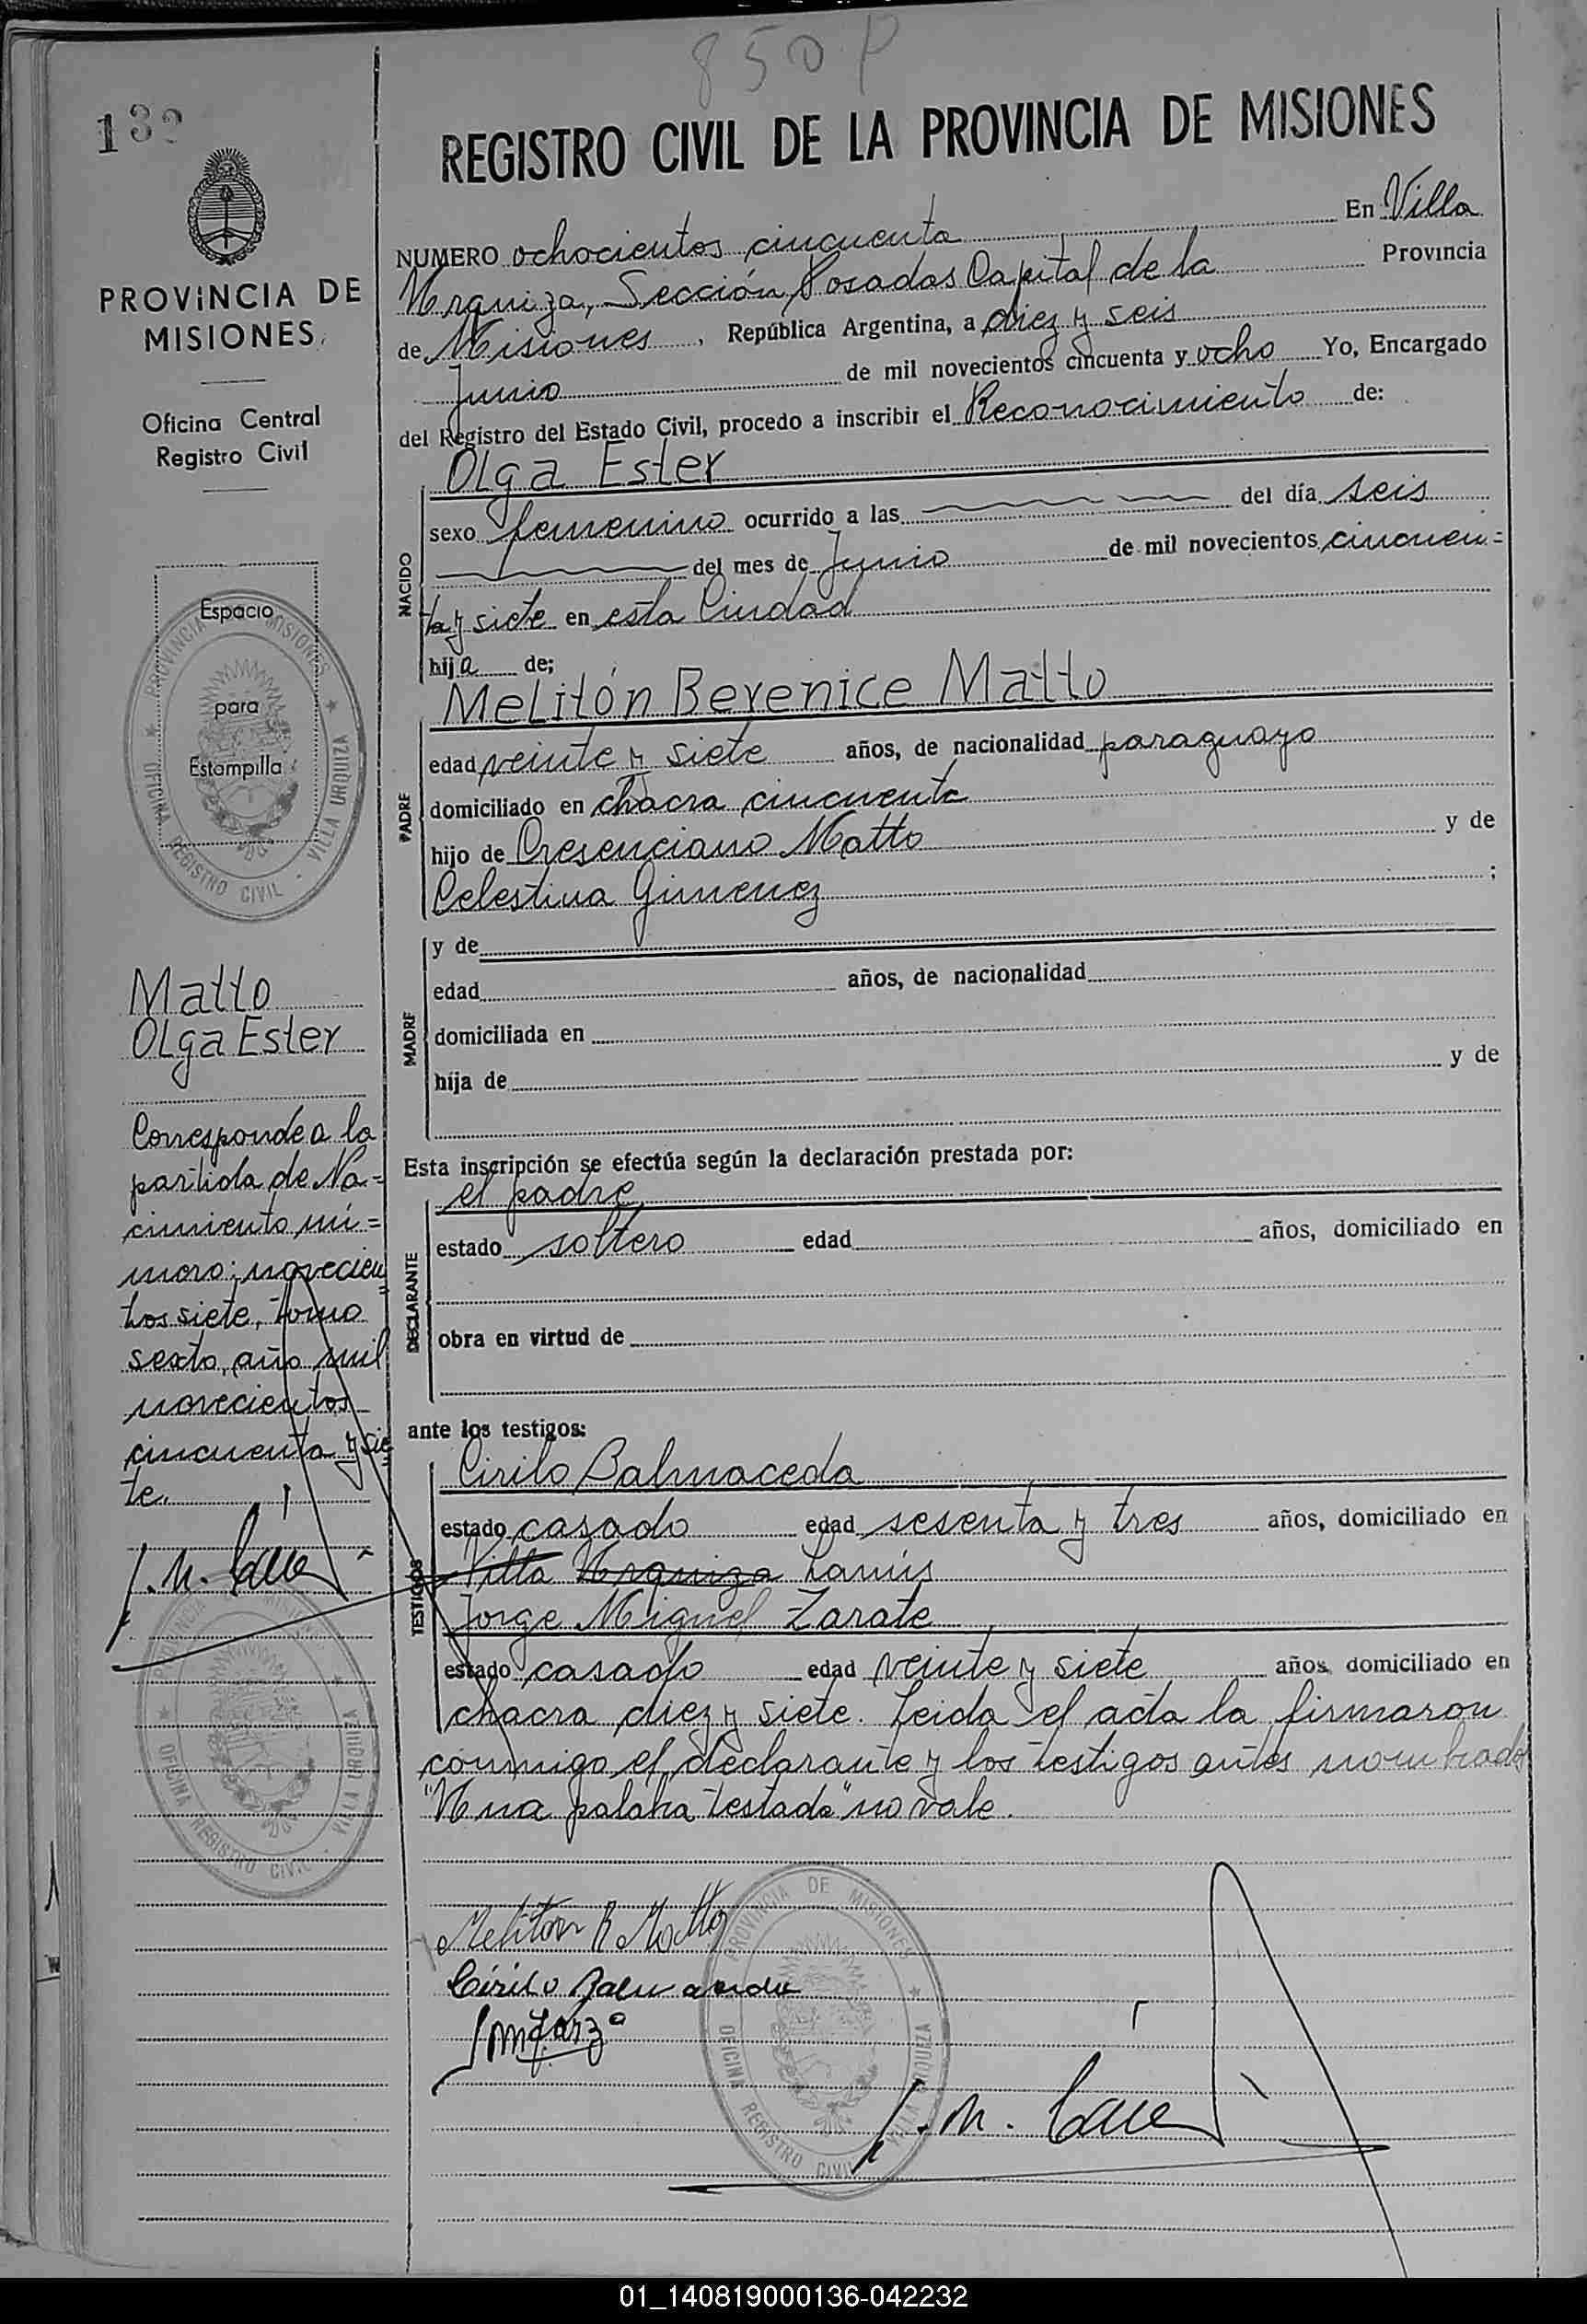 850 P
REGISTRO CIVIL DE LA PROVINCIA DE MISIONES
NUMERO ochocientos cincuenta En Villa
Urquiza, Sección Posadas Capital de la Provincia
de Misiones, República Argentina, a diez y seis
Junio de mil novecientos cincuenta y ocho Yo, Encargado
del Registro del Estado Civil, procedo a inscribir el Reconocimiento de:
NACIDO
Olga Ester
sexo femenino ocurrido a las del día seis
del mes de Junio de mil novecientos cincuen=
ta y siete en esta Ciudad
hija de;
PADRE
Melitón Berenice Matto
edad veinte y siete años, de nacionalidad paraguayo
domiciliado en chacra cincuenta
hijo de Cresenciano Matto y de
Celestina Gimenez ;
MADRE
y de
edad años, de nacionalidad
domiciliada en
hija de y de
Esta inscripción se efectúa según la declaración prestada por:
DECLARANTE
el padre
estado soltero edad años, domiciliado en
obra en virtud de
ante los testigos:
TESTIGOS
Cirilo Balmaceda
estado casado edad sesenta y tres años, domiciliado en
Villa Urquiza Lanús
Jorge Miguel Zarate
estado casado edad veinte y siete años, domiciliado en
chacra diez y siete. Leida el acta la firmaron
conmigo el declarante y los testigos antes nombrados
"Una palaba testada" no vale.
Meliton B Matto
Cirilo Balmaceda
PROVINCIA DE MISIONES
OFICINA REGISTRO CIVIL - VILLA URQUIZA
PROVINCIA DE
MISIONES
Oficina Central
Registro Civil
Espacio
para
Estampilla
PROVINCIA MISIONES
OFICINA REGISTRO CIVIL - VILLA URQUIZA
Matto
Olga Ester
Corresponde a la
partida de Na=
cimiento nú=
mero: novecien
tos siete, tomo
sexto, año mil
novecientos
cincuenta y sie
te.
PROVINCIA MISIONES
OFICINA REGISTRO CIVIL - VILLA URQUIZA
01_140819000136-042232